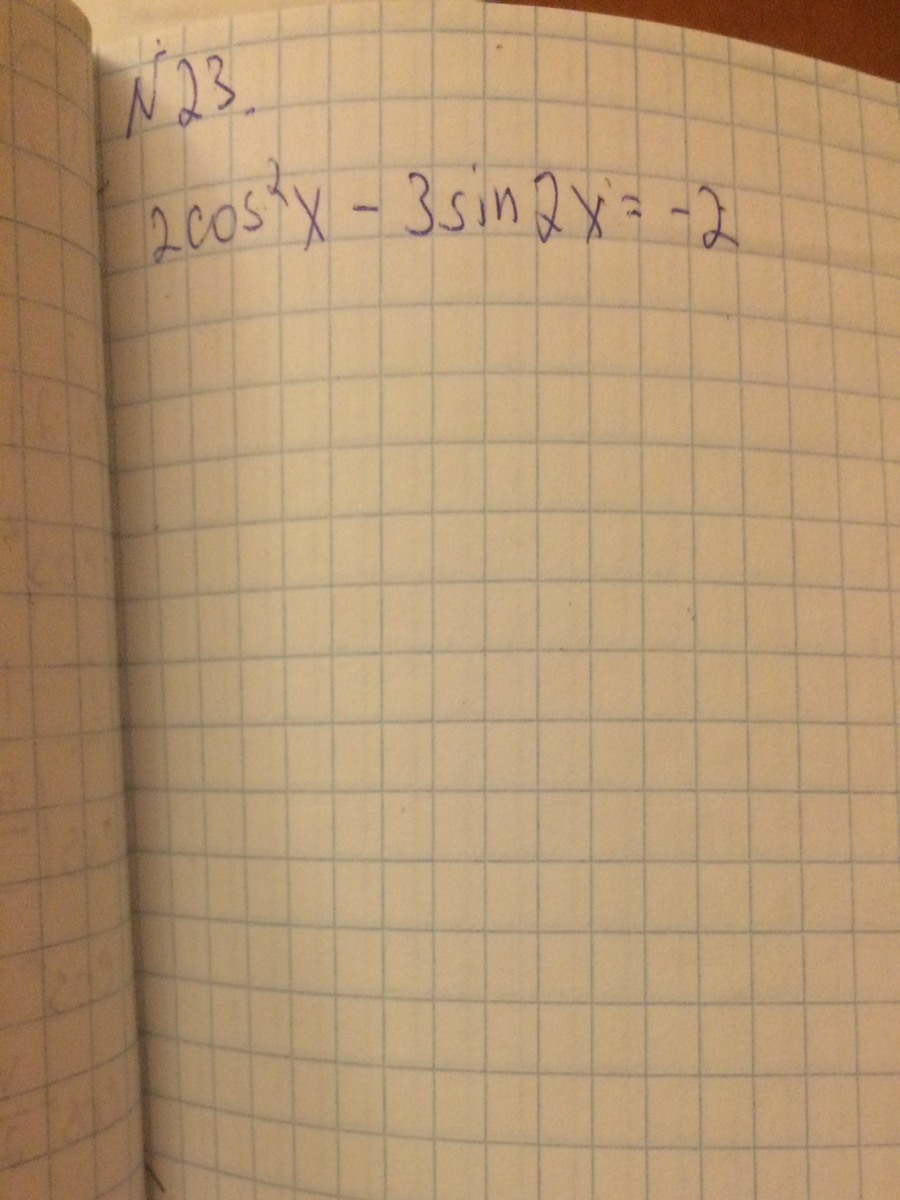 N 23.
2cos²x - 3sin2x = -2